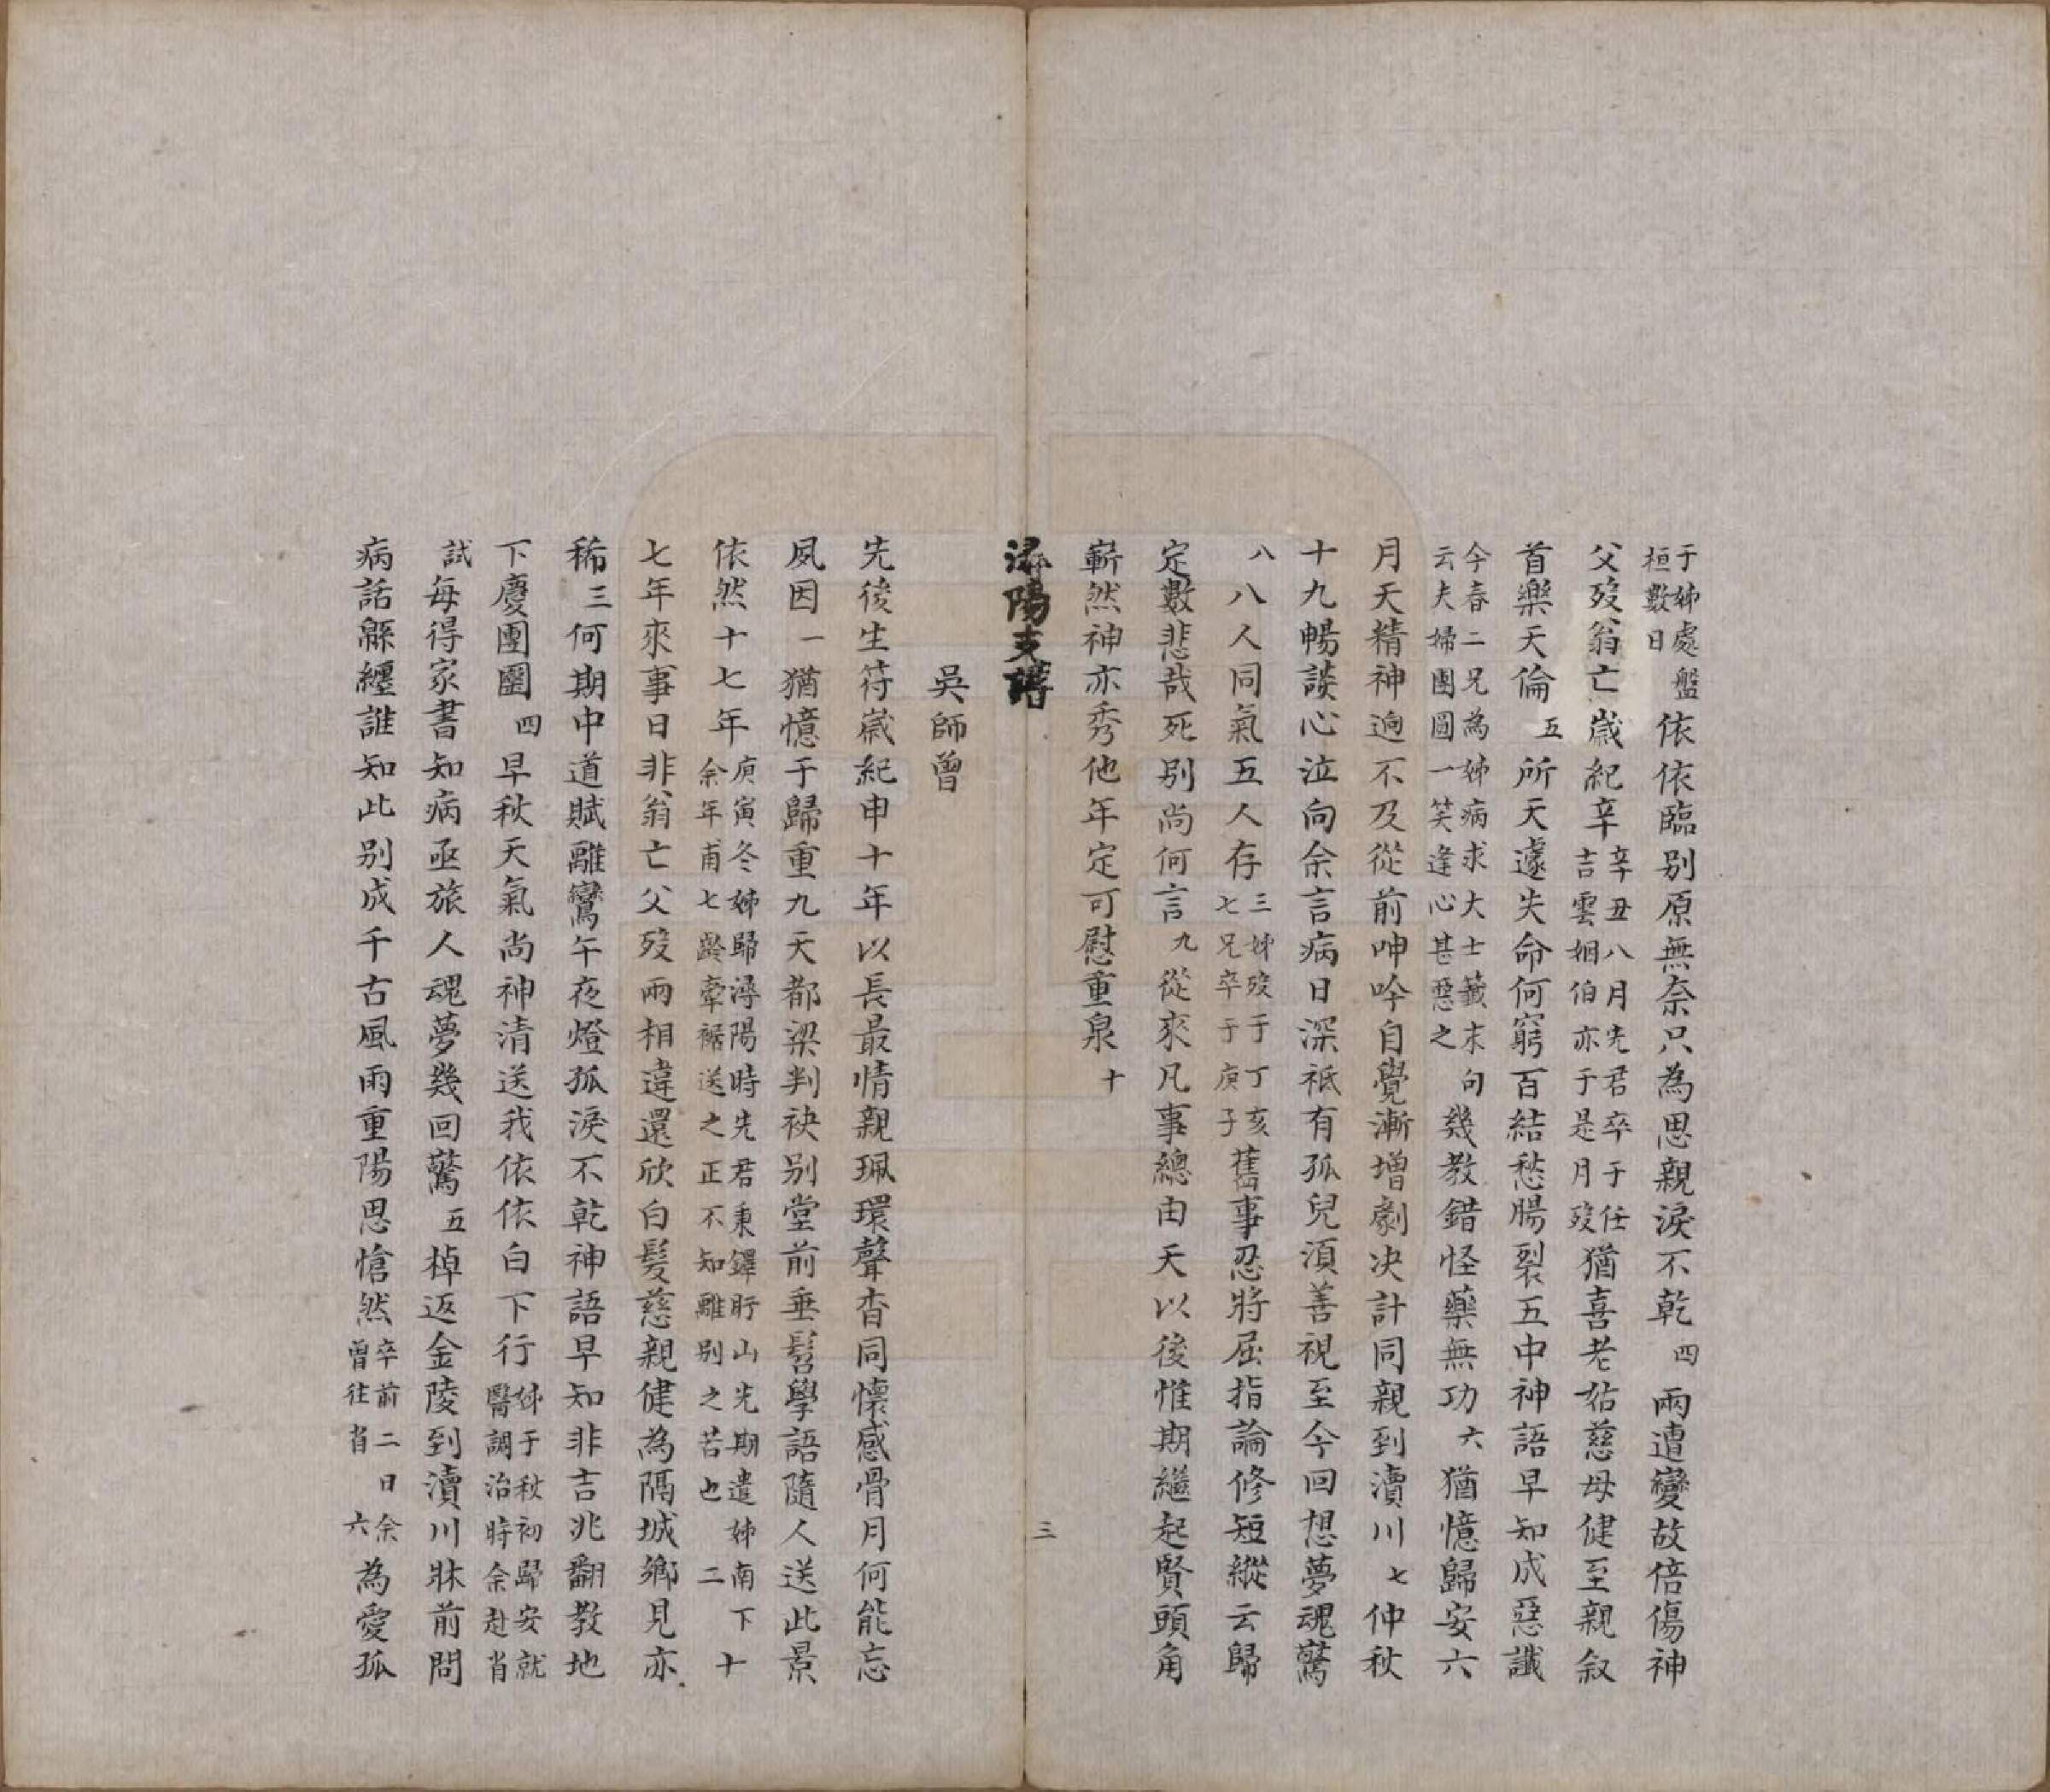 于姊處盤桓數日依依臨别原無奈只為思親淚不乾四兩遭變故倍傷神
父歿翁亡歲紀辛辛丑八月先君卒于任吉雲姻伯亦于是月歿猶喜老姑慈母健至親叙
首樂天倫五所天遽失命何窮百結愁腸裂五中神語早知成惡讖
今春二兄為姊病求大士籤末句云夫婦團圓一笑逢心甚惡之幾教錯怪藥無功六猶憶歸安六
月天精神逈不及從前呻吟自覺漸增劇决計同親到瀆川七仲秋
十九暢談心泣向余言病日深祗有孤兒湏善視至今回想夢魂驚
八八人同氣五人存三姊歿于丁亥七兄卒于庚子舊事忍將屈指論修短縱云歸
定數悲哉死别尚何言九從來凡事總由天以後惟期繼起賢頭角
嶄然神亦秀他年定可慰重泉十
潯陽支譜
三
吳師曾
先後生符歲紀申十年以長最情親珮環聲杳同懷感骨月何能忘
夙因一猶憶于歸重九天都梁判袂别堂前垂髫學語隨人送此景
依然十七年庚寅冬姊歸潯陽時先君秉鐸盱山先期遣姊南下余年甫七齡牽裾送之正不知離别之苦也二十
七年來事日非翁亡父歿兩相違還欣白髮慈親健為隔城鄉見亦
稀三何期中道賦離鸞午夜燈孤淚不乾神語早知非吉兆翻教地
下慶團圞四早秋天氣尚神清送我依依白下行姊于秋初歸安就醫調治時余赴省
試每得家書知病亟旅人魂夢幾回驚五棹返金陵到瀆川牀前問
病話緜纏誰知此别成千古風雨重陽思愴然卒前二日余曾往省六為愛孤